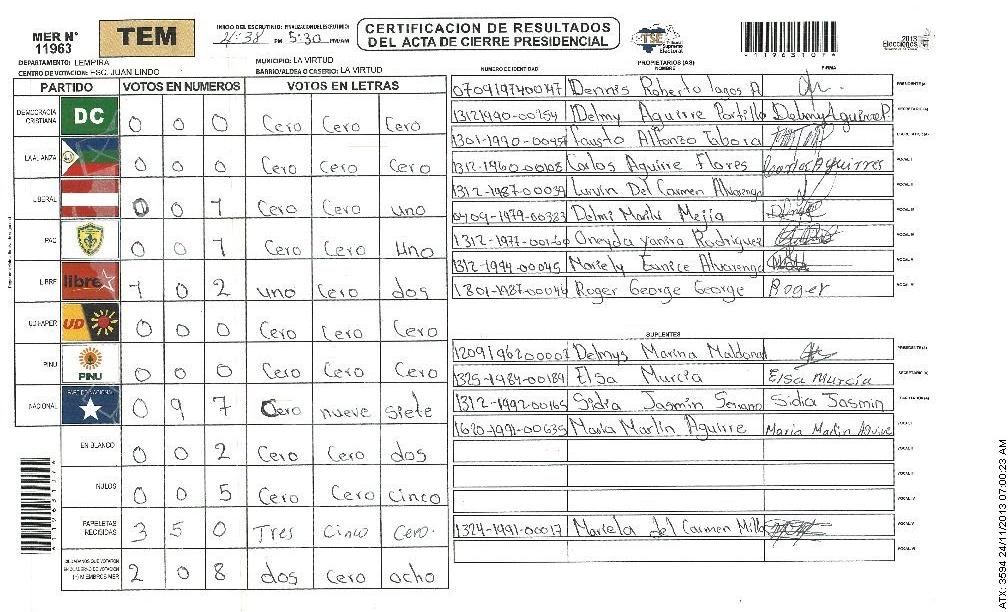 MER N° 11963
TEM
INICIO DEL ESCRUTINIO: 4:38 PM
FINALIZACION DEL ESCRUTINIO: 5:30 PM/AM
CERTIFICACION DE RESULTADOS
DEL ACTA DE CIERRE PRESIDENCIAL
TSE
Tribunal Supremo Electoral
119631074
2013
Elecciones
DEPARTAMENTO: LEMPIRA
MUNICIPIO: LA VIRTUD
CENTRO DE VOTACION: ESC. JUAN LINDO
BARRIO/ALDEA O CASERIO: LA VIRTUD
PARTIDO VOTOS EN NUMEROS VOTOS EN LETRAS
DEMOCRACIA CRISTIANA DC 0 0 0 Cero Cero Cero
LA ALIANZA 0 0 0 Cero Cero Cero
LIBERAL 0 0 1 Cero Cero uno
PAC 0 0 1 Cero Cero uno
LIBRE libre 1 0 2 uno Cero dos
UD-FAPER UD 0 0 0 Cero Cero Cero
PINU PINU 0 0 0 Cero Cero Cero
NACIONAL 0 9 7 Cero nueve siete
EN BLANCO 0 0 2 Cero Cero dos
NULOS 0 0 5 Cero Cero cinco
PAPELETAS RECIBIDAS 3 5 0 Tres Cinco Cero.
CIUDADANOS QUE VOTARON EN CUADERNO DE VOTACION (+) MIEMBROS MER 2 0 8 dos Cero ocho
PROPIETARIOS (AS)
NUMERO DE IDENTIDAD NOMBRE FIRMA
0709197400047 Dennis Roberto Lagos A PRESIDENTE (A)
1312-1990-00254 Delmy Aguirre Portillo Delmy Aguirre P. SECRETARIO (A)
1301-1990-00454 Fausto Alfonzo Tabora
1312-1960-00008 Carlos Aguirre Flores Carlos Aguirres VOCAL I
1312-1987-00034 Lurvin Del Carmen Alvarenga VOCAL II
0409-1979-00383 Delmi Marilu Mejia VOCAL III
1312-1977-00160 Oneyda Yanira Rodriguez VOCAL IV
1312-1994-00045 Mariely Eunice Alvarenga VOCAL V
1801-1987-00046 Roger George George Roger VOCAL VI
SUPLENTES
1209196200007 Delmys Marina Maldonad PRESIDENTE (A)
1325-1984-00189 Elsa Murcia Elsa Murcia SECRETARIO (A)
1312-1992-00165 Sidia Jasmin Serrano Sidia Jasmin
1620-1991-00635 Maria Marlin Aguirre Maria Marlin Aguirre VOCAL I
VOCAL II
VOCAL III
VOCAL IV
1324-1991-00017 Mariela del Carmen Milla VOCAL V
VOCAL VI
ATX: 3594 24/11/2013 07:00:23 AM